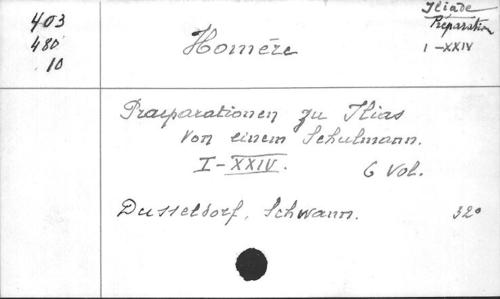 403
480
10
Homére
Iliade
Préparation
I-XXIV
Praeparationen zu Ilias
von einem Schulmann.
I-XXIV. 6 Vol.
Dusseldorf, Schwann. 32°